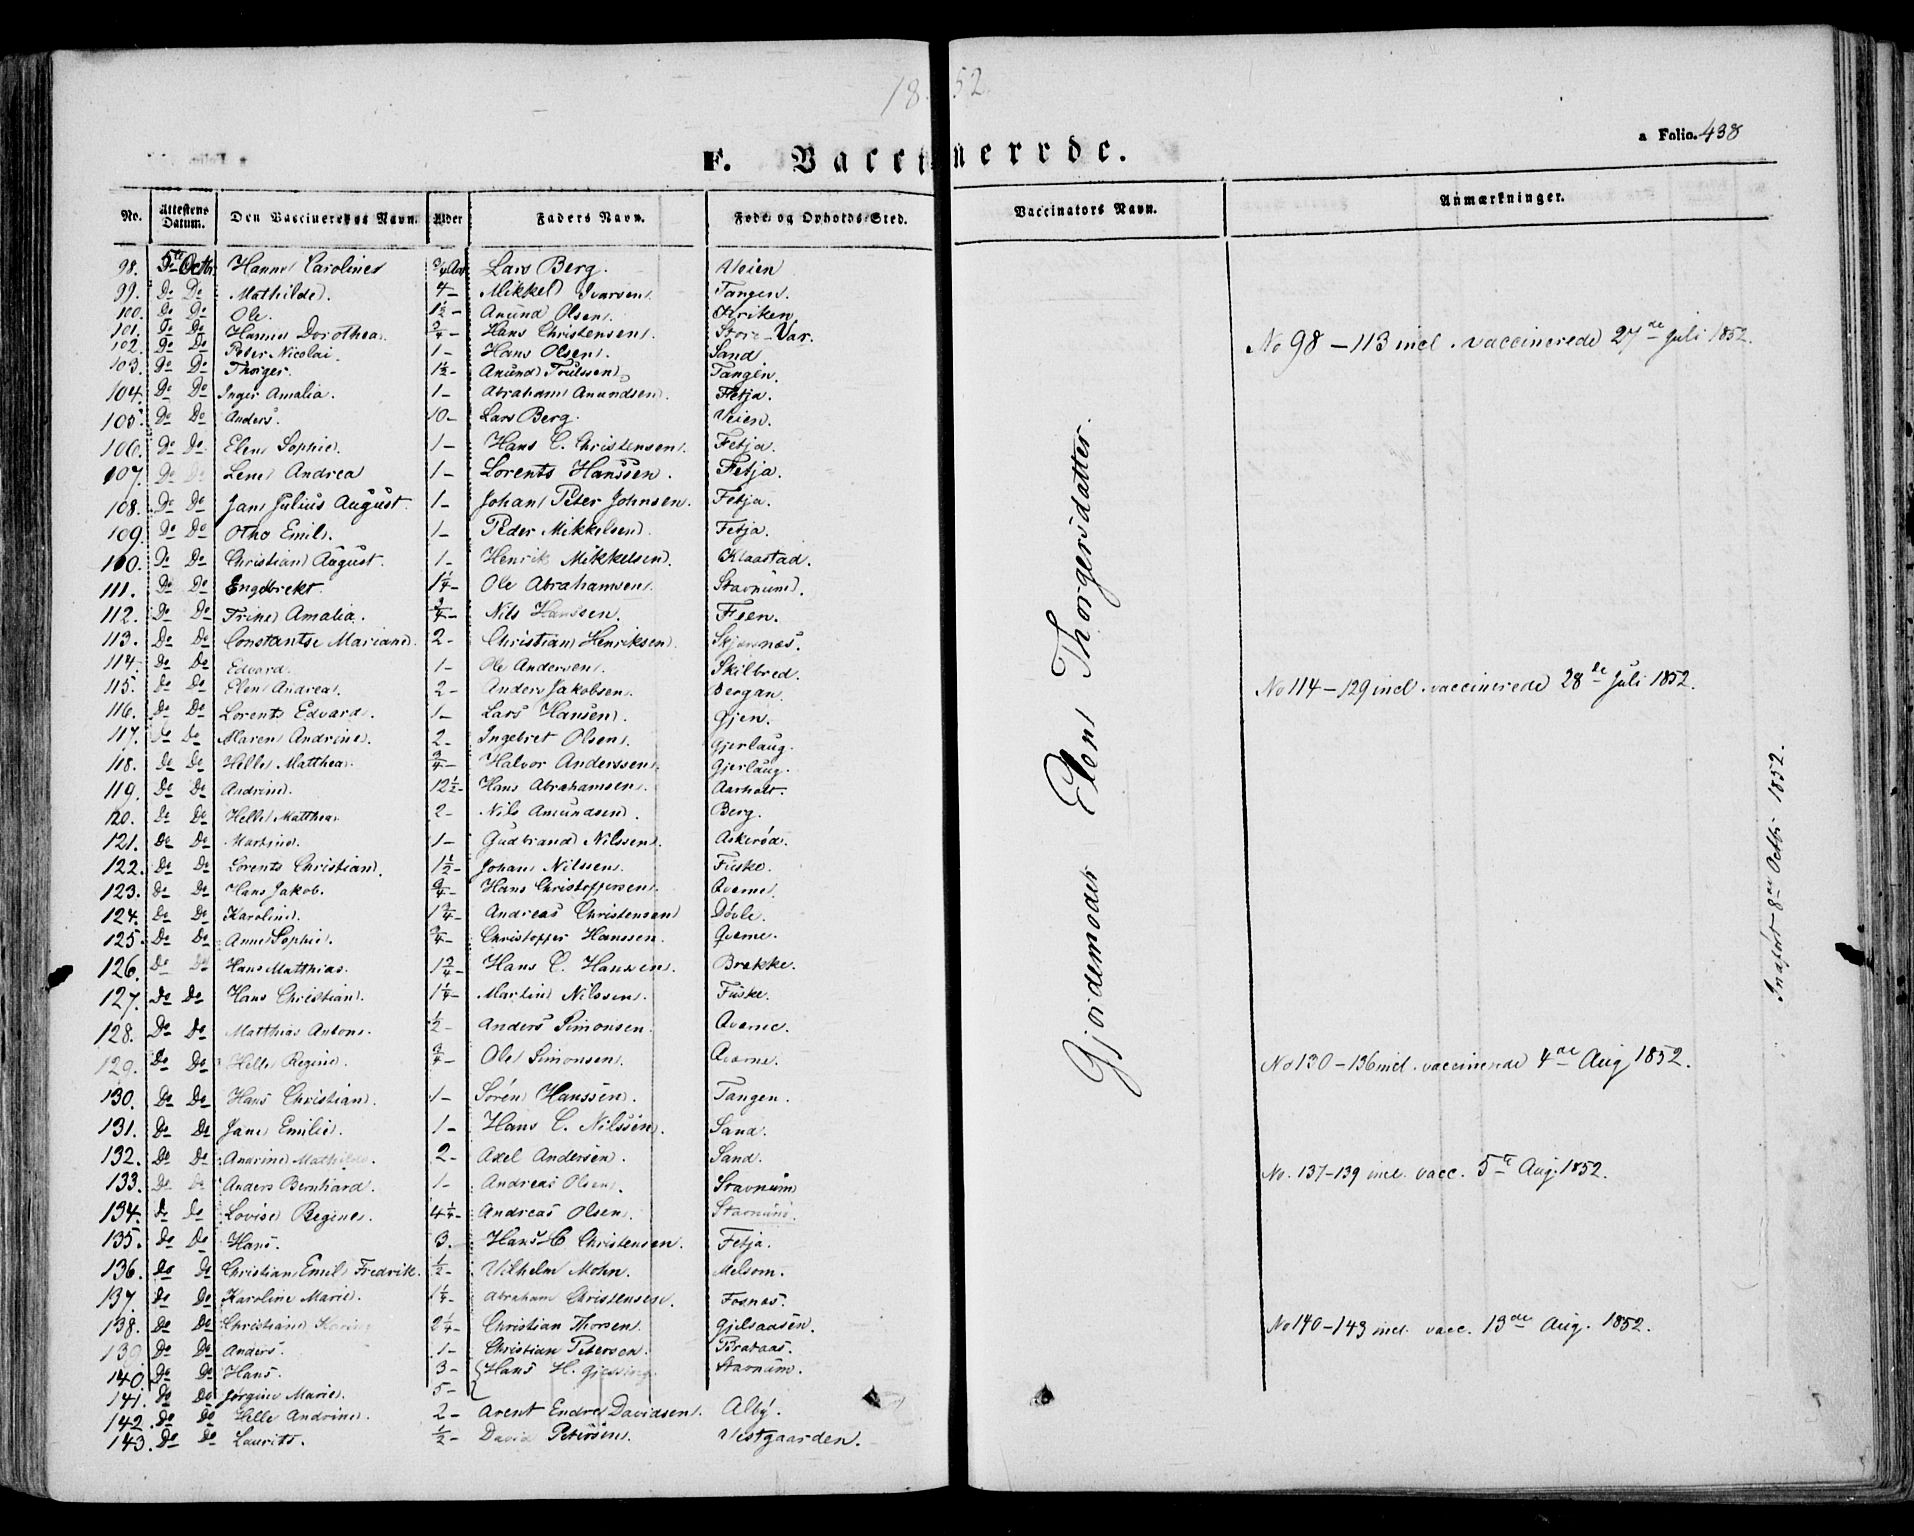 1852
a Folio. 438
F. Vaccinerrde.
No. | Attestens Datum. | Den Vaccineredes Navn. | Alder | Faders Navn. | Føde- og Opholds-Sted. | Vaccinators Navn. | Anmærkninger.
98. 5te Octbr. Hanne Caroline 3/4 Aar Lars Berg. Veien
99. Do Do Mathilde. 4 - Mikkel Ivarsen. Tangen.
100. Do Do Ole. 1 1/2 - Anund Olsen. Kriken.
101. Do Do Hanne Dorothea. 3/4 - Hans Christensen. Store-Var.
102. Do Do Peter Nicolai. 1 - Hans Olsen. Sand.
103. Do Do Thorger. 1 1/2 - Anund Toulssen. Tangen.
104. Do Do Inger Amalia. 1 - Abraham Anundsen. Fetja.
105. Do Do Anders. 10 - Lars Berg. Veien.
106. Do Do Elen Sophie. 1 - Hans C. Christensen. Fetja.
107. Do Do Lene Andrea 1 - Lorents Hanssen. Fetja.
108. Do Do Jans Julius August. 1 - Johan Peter Johnsen. Fetja.
109. Do Do Otho Emil. 1 - Peder Mikkelsen. Fetja.
110. Do Do Christian August. 1 - Henrik Mikkelsen. Klaastad.
111. Do Do Engebrekt. 1 1/4 - Ole Abrahamsen. Stavnum.
112. Do Do Trine Amalia. 3/4 - Nils Hanssen. Feen.
113. Do Do Constantse Mariane. 2 - Christian Henriksen. Skjærnes.
114. Do Do Edvard. 1 - Ole Andersen. Skilbred.
115. Do Do Elen Andrea. 2 - Anders Jakobsen. Bergan.
116. Do Do Lorents Edvard. 1 - Lars Hansen. Øjen.
117. Do Do Maren Andrine. 2 - Ingebret Olsen. Gjerlaug.
118. Do Do Helle Matthea. 3/4 - Halvor Anderssen. Gjerlaug.
119. Do Do Andrine. 12 1/2 - Hans Abrahamsen. Aarholt.
120. Do Do Helle Matthea 2 - Nils Amundsen. Berg.
121. Do Do Martine. 1 - Gudbrand Nilssen. Askerød.
122. Do Do Lorents Christian. 1 1/2 - Johan Nilssen. Fuske.
123. Do Do Hans Jakob. 3/4 - Hans Christoffersen. Qværne.
124. Do Do Karoline. 1 3/4 - Andreas Christensen Døvle.
125. Do Do Anne Sophie. 3/4 - Christopher Hanssen. Qværne.
126. Do Do Hans Matthias. 1 3/4 - Hans C. Hanssen. Brekke.
127. Do Do Hans Christian. 1 1/4 - Martin Nilssen. Fuske.
128. Do Do Matthias Anton. 1/2 - Anders Simonsen. Qværne.
129. Do Do Helle Regine. 3/4 - Ole Simonsen. Qværne.
130. Do Do Hans Christian. 1 - Søren Hanssen. Tangen.
131. Do Do Jane Emilie. 1 - Hans C. Nilssen. Sand.
132. Do Do Andrine Mathilde. 2 - Axel Andersen. Sand.
133. Do Do Anders Bernhard. 1 - Andreas Olsen. Stavnum
134. Do Do Lovise Regine. 4 1/4 - Andreas Olsen. Stavnum.
135. Do Do Hans. 3. Hans C Christensen. Fetja.
136. Do Do Christian Emil Fredrik. 1/2 - Vilhelm Mohn. Melsom.
137. Do Do Karoline Marie. 1 1/4 - Abraham Christensen. Fosnæs.
138. Do Do Christiane Karine 2 1/4 - Christian Thorsen. Gjelsaasen.
139. Do Do Anders. 1 - Christian Petersen. Brataas.
140. Do Do Hans. 3 - Hans H. Gjessing. Stavnum.
141. Do Do Jørgine Marie. 5 -
142. Do Do Helle Andrine. 2 - Arent Endre Davidsen. Alby.
143. Do Do Laurits. 1/2 - David Petersen. Vestgaarden.
Gjordemoder Elen Thorgersdatter.
No 98 - 113 incl. vaccinerede 27de Juli 1852.
No 114 - 129 incl. vaccinerede 28de Juli 1852.
No 130 - 136 incl. vaccinerede 4de Aug 1852.
No. 137 - 139 incl. vacc. 5te Aug. 1852.
No 140 - 143 incl. vacc. 13de Aug. 1852.
Indført 8de Octbr 1852.